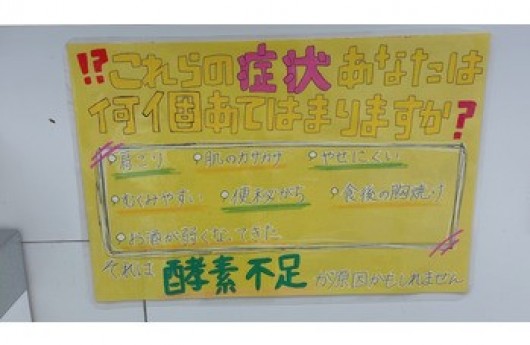 !?これらの症状あなたは
何個あてはまりますか?
肩こり 肌のカサカサ やせにくい
むくみやすい 便秘がち 食後の胸焼け
お酒が弱くなってきた
それは酵素不足が原因かもしれません